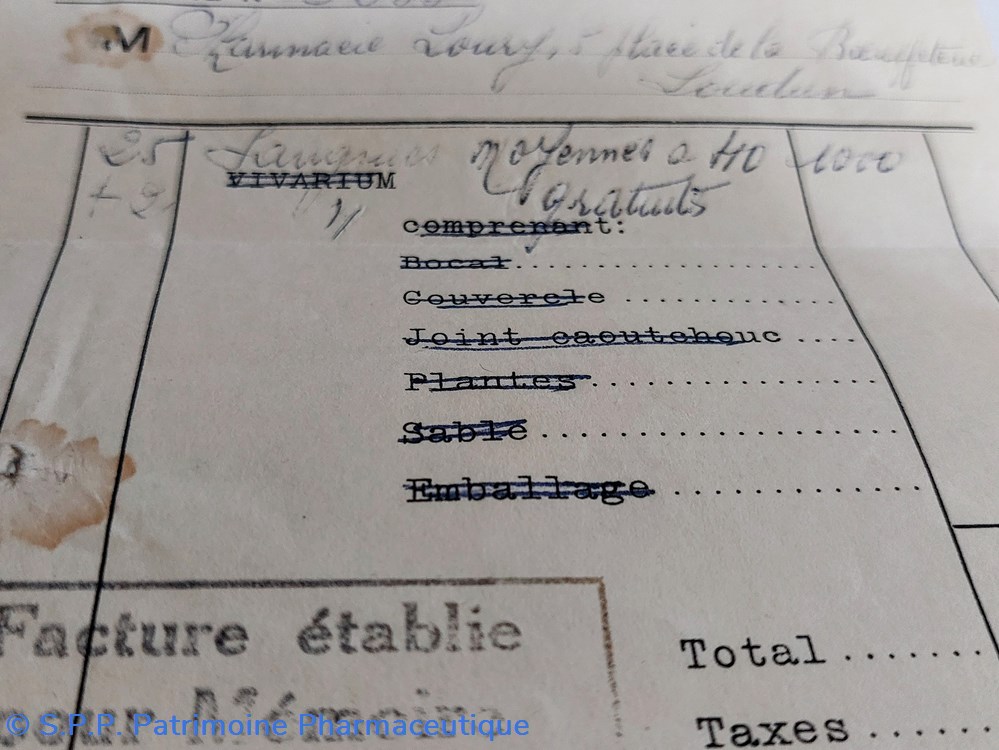 M Pharmacie Loury, 5 place de la Boeuffeterie
Loudun
25 Sangsues moyennes à 40 1000
+ 2 " gratuits
VIVARIUM
comprenant:
Bocal..........................
Couvercle ....................
Joint caoutchouc ....
Plantes.......................
Sable.........................
Emballage ...............
Facture établie
pour Mémoire
Total .......
Taxes .......
© S.P.P. Patrimoine Pharmaceutique